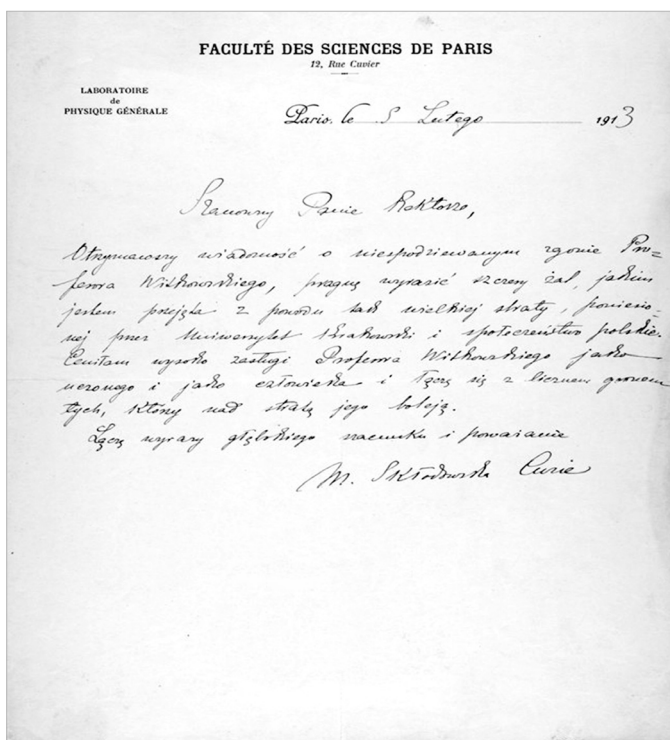 FACULTÉ DES SCIENCES DE PARIS
12, Rue Cuvier
LABORATOIRE
de
PHYSIQUE GÉNÉRALE
Paris, le 5 Lutego 1913
Szanowny Panie Rektorze,
Otrzymawszy wiadomość o niespodziewanym zgonie Pro=
fesora Witkowskiego, pragnę wyrazić szczery żal, jakim
jestem przejęta z powodu tak wielkiej straty, poniesio=
nej przez Uniwersytet Krakowski i społeczeństwo polskie.
Ceniłam wysoko zasługi Profesora Witkowskiego jako
uczonego i jako człowieka i łączę się z licznem gronem
tych, którzy nad stratą jego boleją.
Łączę wyrazy głębokiego szacunku i poważania
M. Skłodowska Curie